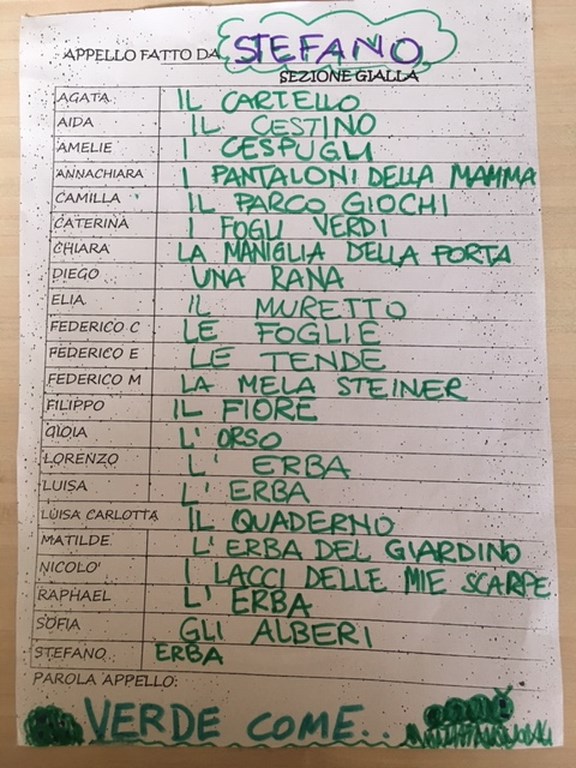 APPELLO FATTO DA STEFANO
SEZIONE GIALLA
AGATA IL CARTELLO
AIDA IL CESTINO
AMELIE I CESPUGLI
ANNACHIARA I PANTALONI DELLA MAMMA
CAMILLA IL PARCO GIOCHI
CATERINA I FOGLI VERDI
CHIARA LA MANIGLIA DELLA PORTA
DIEGO UNA RANA
ELIA IL MURETTO
FEDERICO C LE FOGLIE
FEDERICO E LE TENDE
FEDERICO M LA MELA STEINER
FILIPPO IL FIORE
GIOIA L'ORSO
LORENZO L'ERBA
LUISA L'ERBA
LUISA CARLOTTA IL QUADERNO
MATILDE L'ERBA DEL GIARDINO
NICOLO' I LACCI DELLE MIE SCARPE
RAPHAEL L'ERBA
SOFIA GLI ALBERI
STEFANO ERBA
PAROLA APPELLO:
VERDE COME...